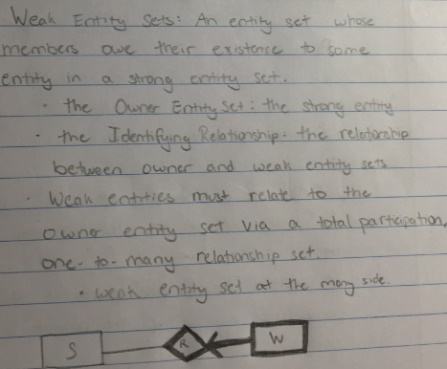 Weak Entity Sets: An entity set whose
members owe their existence to some
entity in a strong entity set.
• the Owner Entity Set: the strong entity
• the Identifying Relationship: the relationship
between owner and weak entity sets
• Weak entities must relate to the
owner entity set via a total participation,
one-to-many relationship set.
• weak entity set at the many side.
S R W